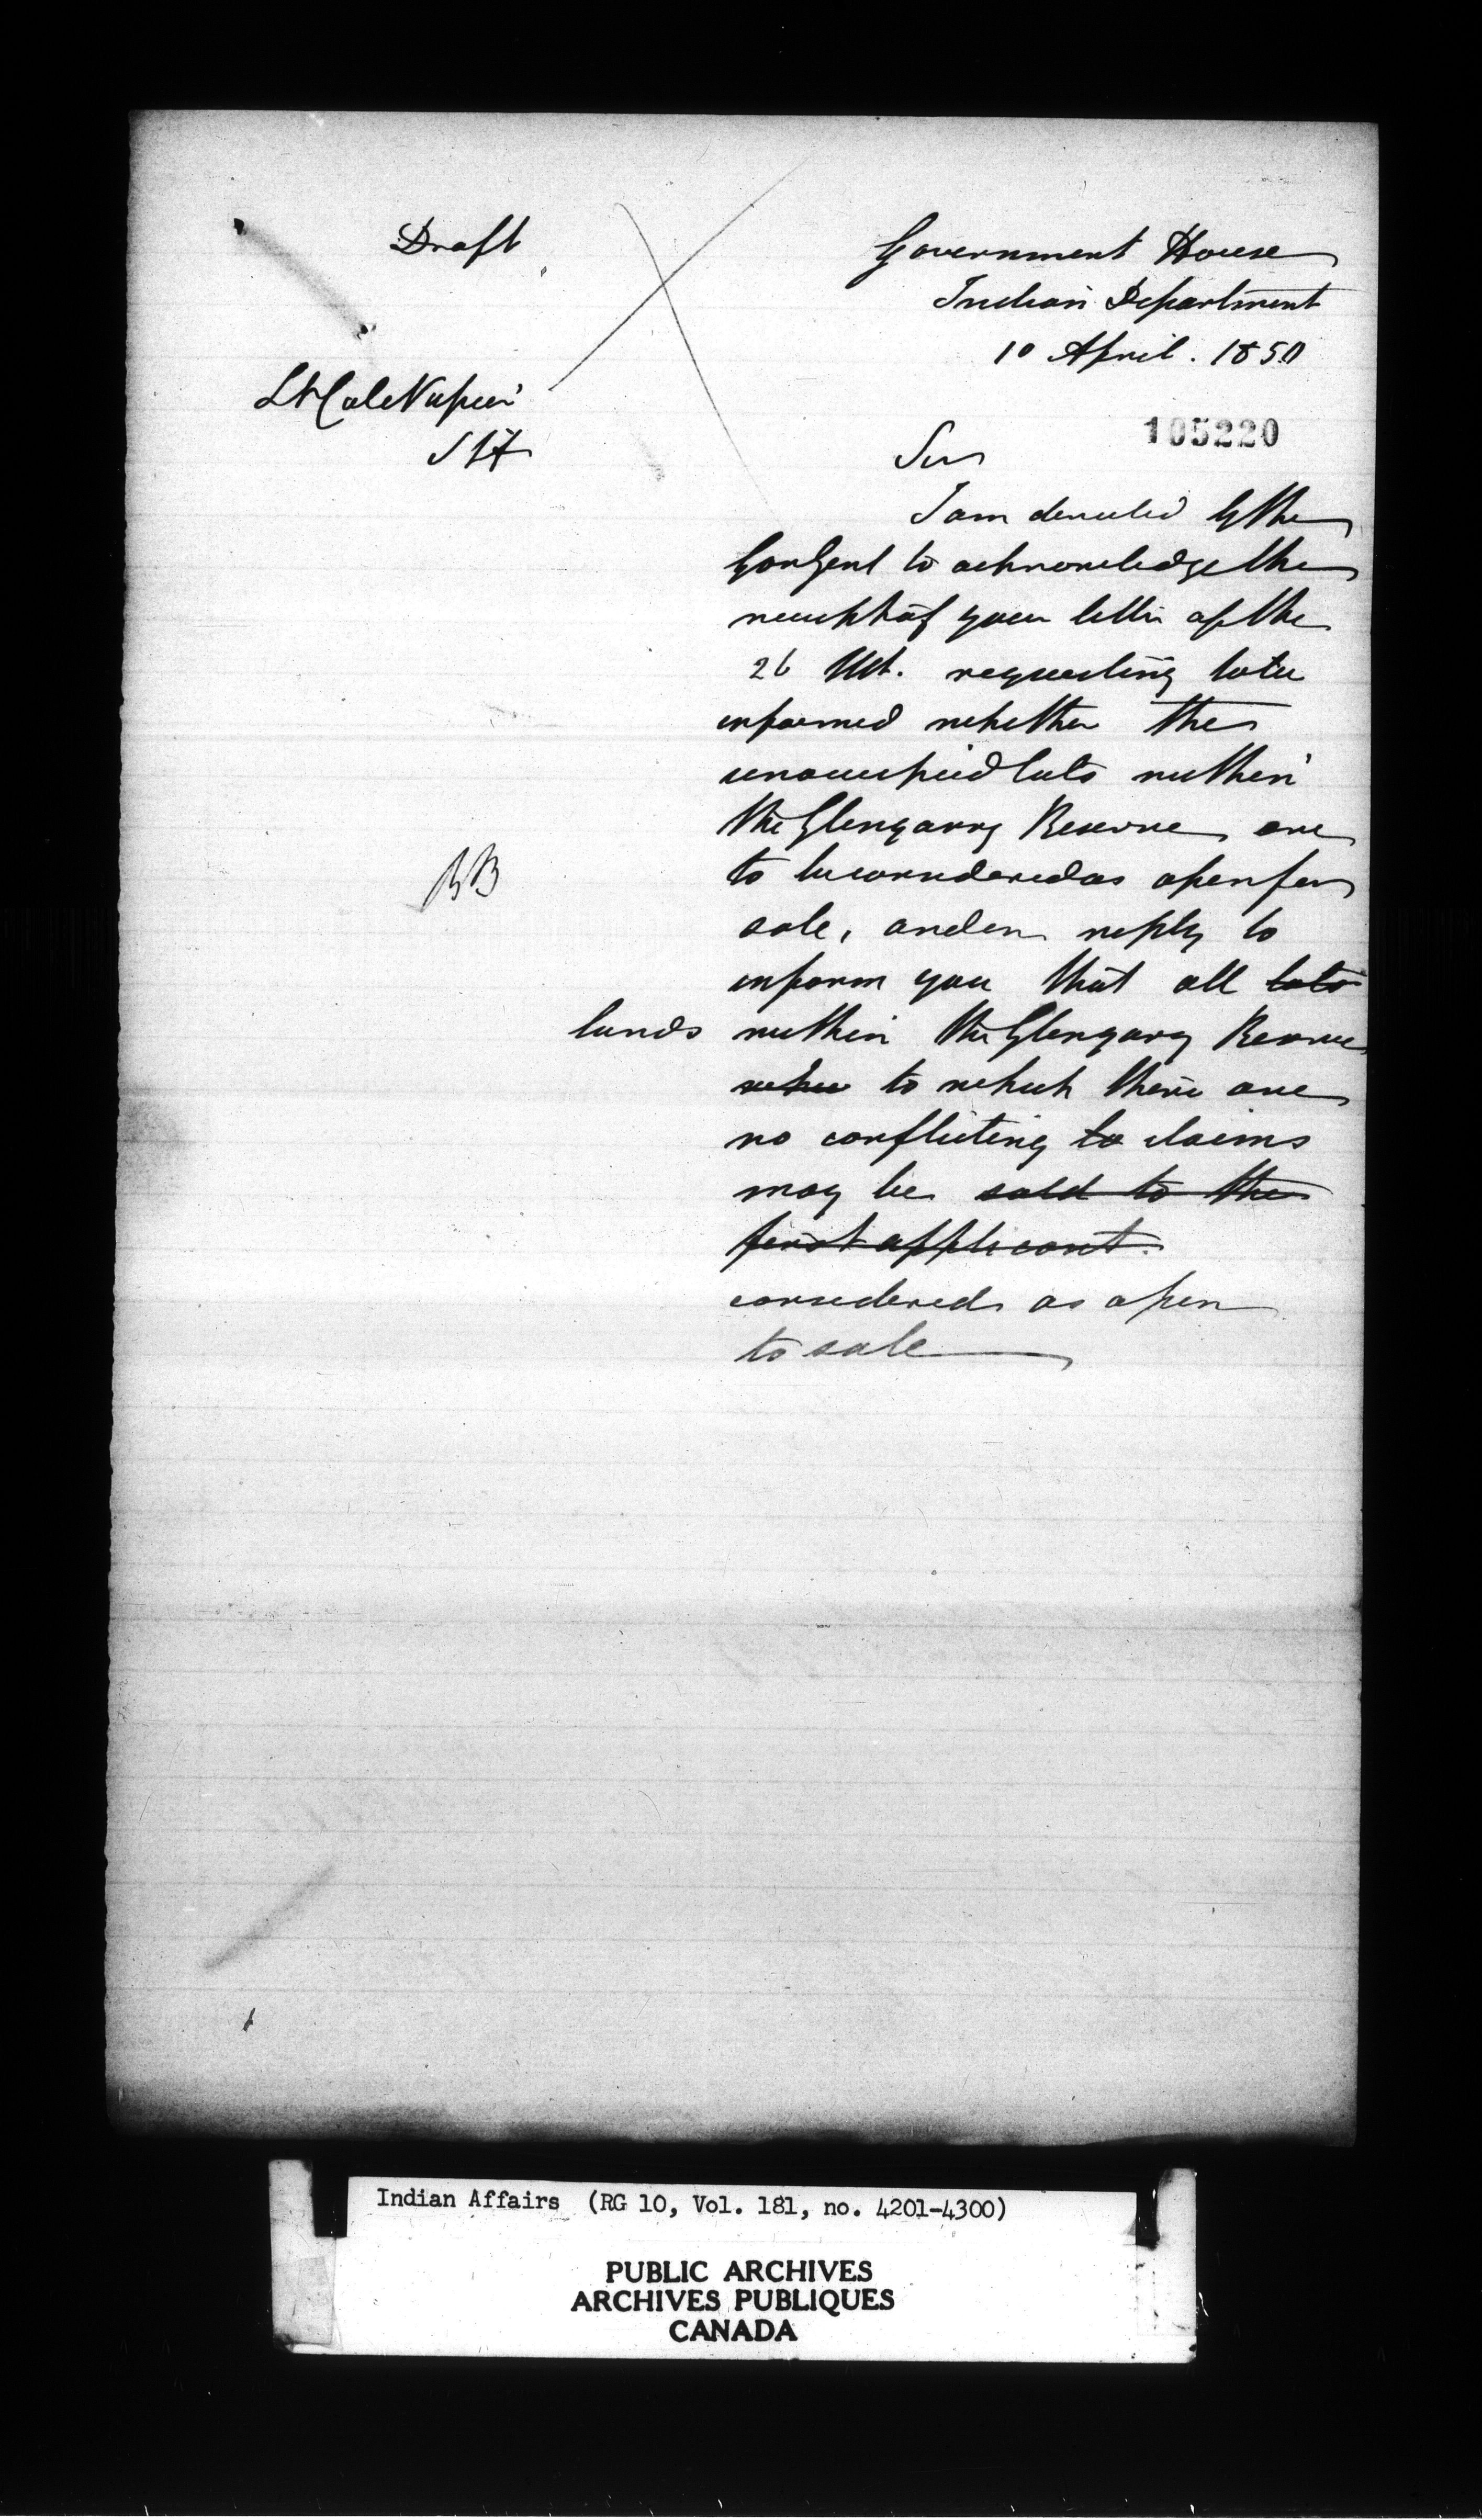 Draft
Government House
Indian Department
10 April. 1850
Lt Col Napier
SIA
105220
Sir
I am directed by the
Gov Genl to acknowledge the
receipt of your letter of the
26 Ult. requesting to be
informed whether the
unoccupied lots within
the Glengarry Reserve are
to be considered as open for
sale, and in reply to
inform you that all lots
lands within the Glengary Reserve
to which there are
no conflicting to claims
may be sold to the
first applicant.
considered as open
to sale
Indian Affairs (RG 10, Vol. 181, no. 4201-4300)
PUBLIC ARCHIVES
ARCHIVES PUBLIQUES
CANADA